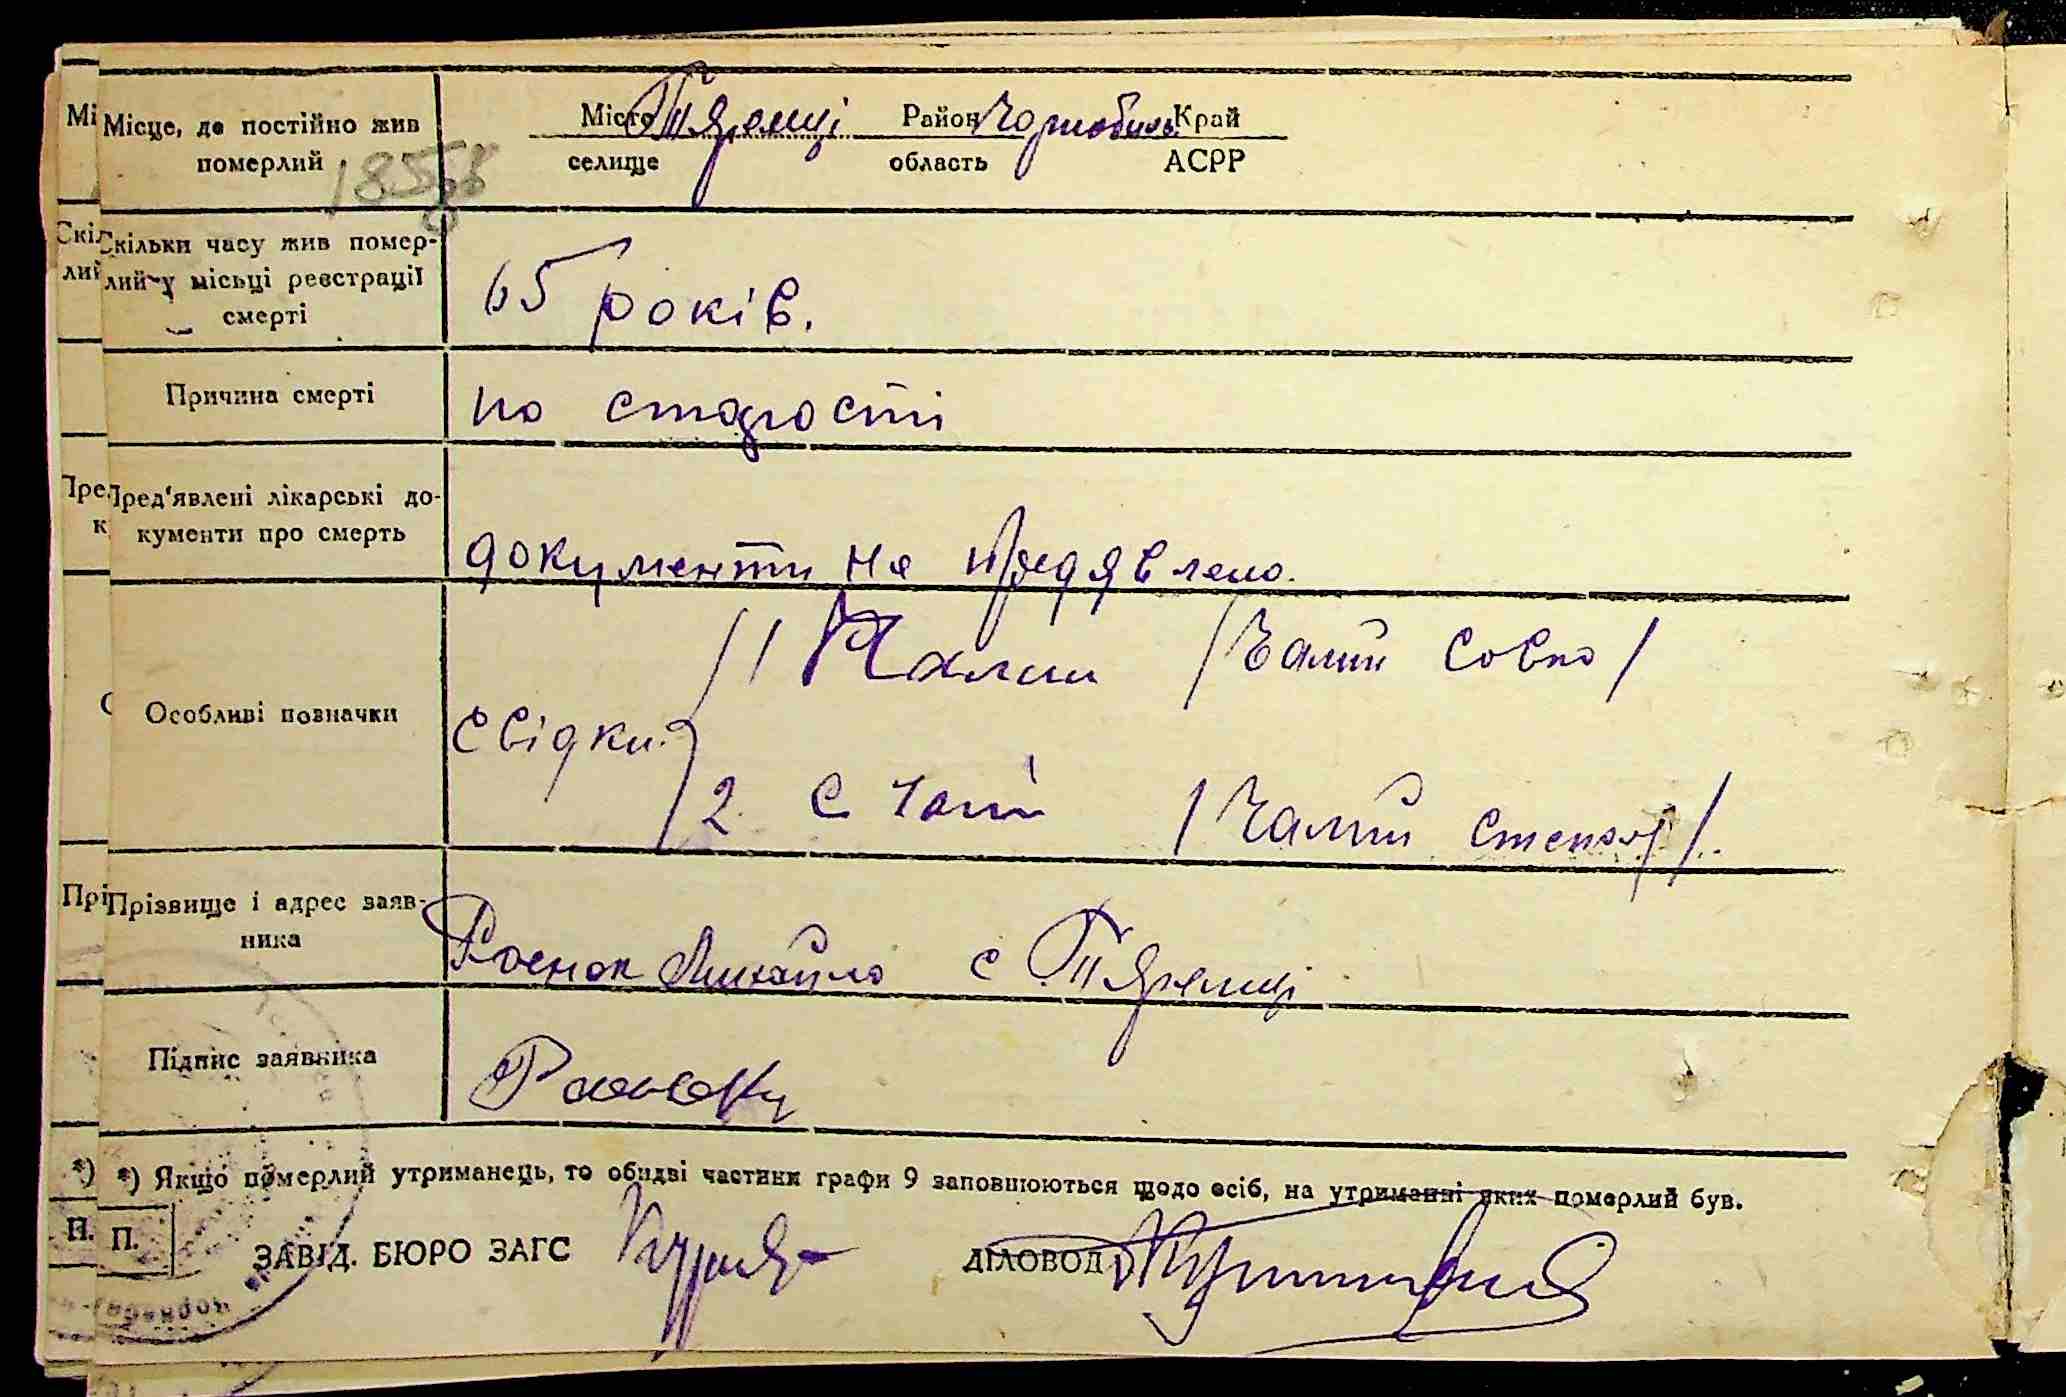 Місце, де постійно жив
померлий
Місто Тяремці Район Чорнобиль Край
селище область АСРР
Скільки часу жив помер-
лий у місьці реєстрації
смерті
65 років.
Причина смерті
по старості
Пред'явлені лікарські до-
кументи про смерть
документи не предявлено.
Особливі позначки
свідки.
1 /Чалий Совко/
2. С Чалий /Чалий Степан/.
Прізвище і адрес заяв-
ника
Михайло с Тяремці
Підпис заявника
*) Якщо померлий утриманець, то обидві частини графи 9 заповнюються щодо осіб, на утриманні яких померлий був.
П.
ЗАВІД. БЮРО ЗАГС
ДІЛОВОД